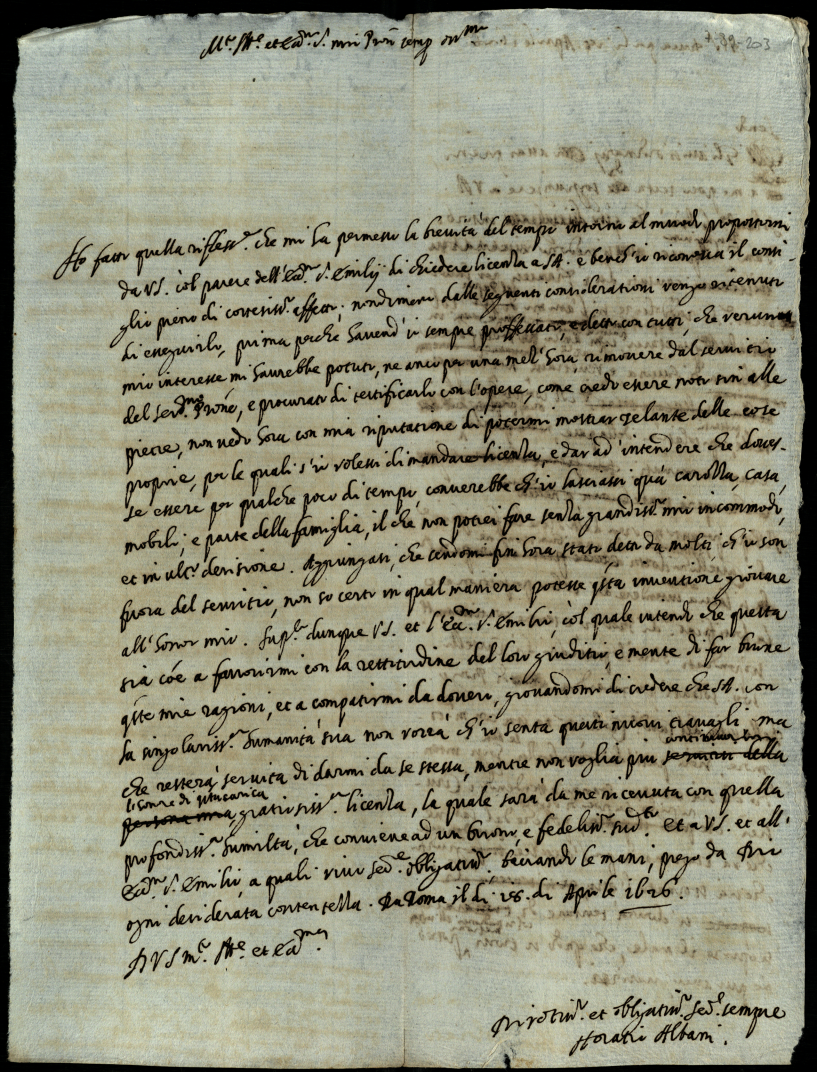 203
Mto. Illre. et Ecc.mo S. mio Pron. semp. oss.mo
Ho fatto quella rifless.e che mi ha permesso la brevità del tempo intorno al modo propostomi
da VS. col parere dell'Ecc.mo S. Emilij di chiedere licenza a SA. e bench'io riconosca il consi-
glio pieno di cortesiss.o affetto, nondimeno dalle seguenti considerationi vengo ritenuto
di eseguirlo, prima perche havend'io sempre professato, e detto con tutti, che veruno
mio interesse mi haurebbe potuto, ne anco per una mez'hora rimovere dal servitio
del Ser.mo Prone, e procurato di testificarlo con l'opere, come credo essere noto sin alle
pietre, non vedo hora con mia riputatione di potermi mostrar zelante delle cose
proprie, per le quali s'io volessi dimandare licenza, e dar ad intendere che doves-
se essere per qualche poco di tempo, converebbe ch'io lasciassi quà carozza, casa,
mobili, e parte della famiglia, il che non potrei fare senza grandiss.o mio incommodo,
et in ult.o derisione. Aggiungasi, che sendomi sin hora stato detto da molti ch'io son
fuora del servitio, non so certo in qual maniera potesse q.sta inventione giovare
all'honor mio. Sup.co dunque VS. et l'Ecc.mo S. Emilij, col quale intendo che questa
sia cóe a favorirmi con la rettitudine del loro giuditio, e mente di far buone
q.ste mie ragioni, et a compatirmi da dovero, giovandomi di credere che SA. con
la singolariss.a humanità sua non vorrà ch'io senta questi nuovi travagli, ma
che resterà servita di darmi da se stessa, mentre non voglia piu servirsi della
persona mia gratiosiss.a licenza, la quale sarà da me ricevuta con quella
profondiss.a humiltà, che conviene ad un buono, e fedeliss.o sud.to et a VS. et all'
Ecc.mo S. Emilij, a quali vivo se.re obligatiss.o baciando le mani, prego da Dio
ogni desiderata contentezza. Da Roma il dì 18. di Aprile 1626.
D VS m.to Ill.re et Ecc.ma
Divotiss.o et obligatiss.o se.re sempre
Horatio Albani.